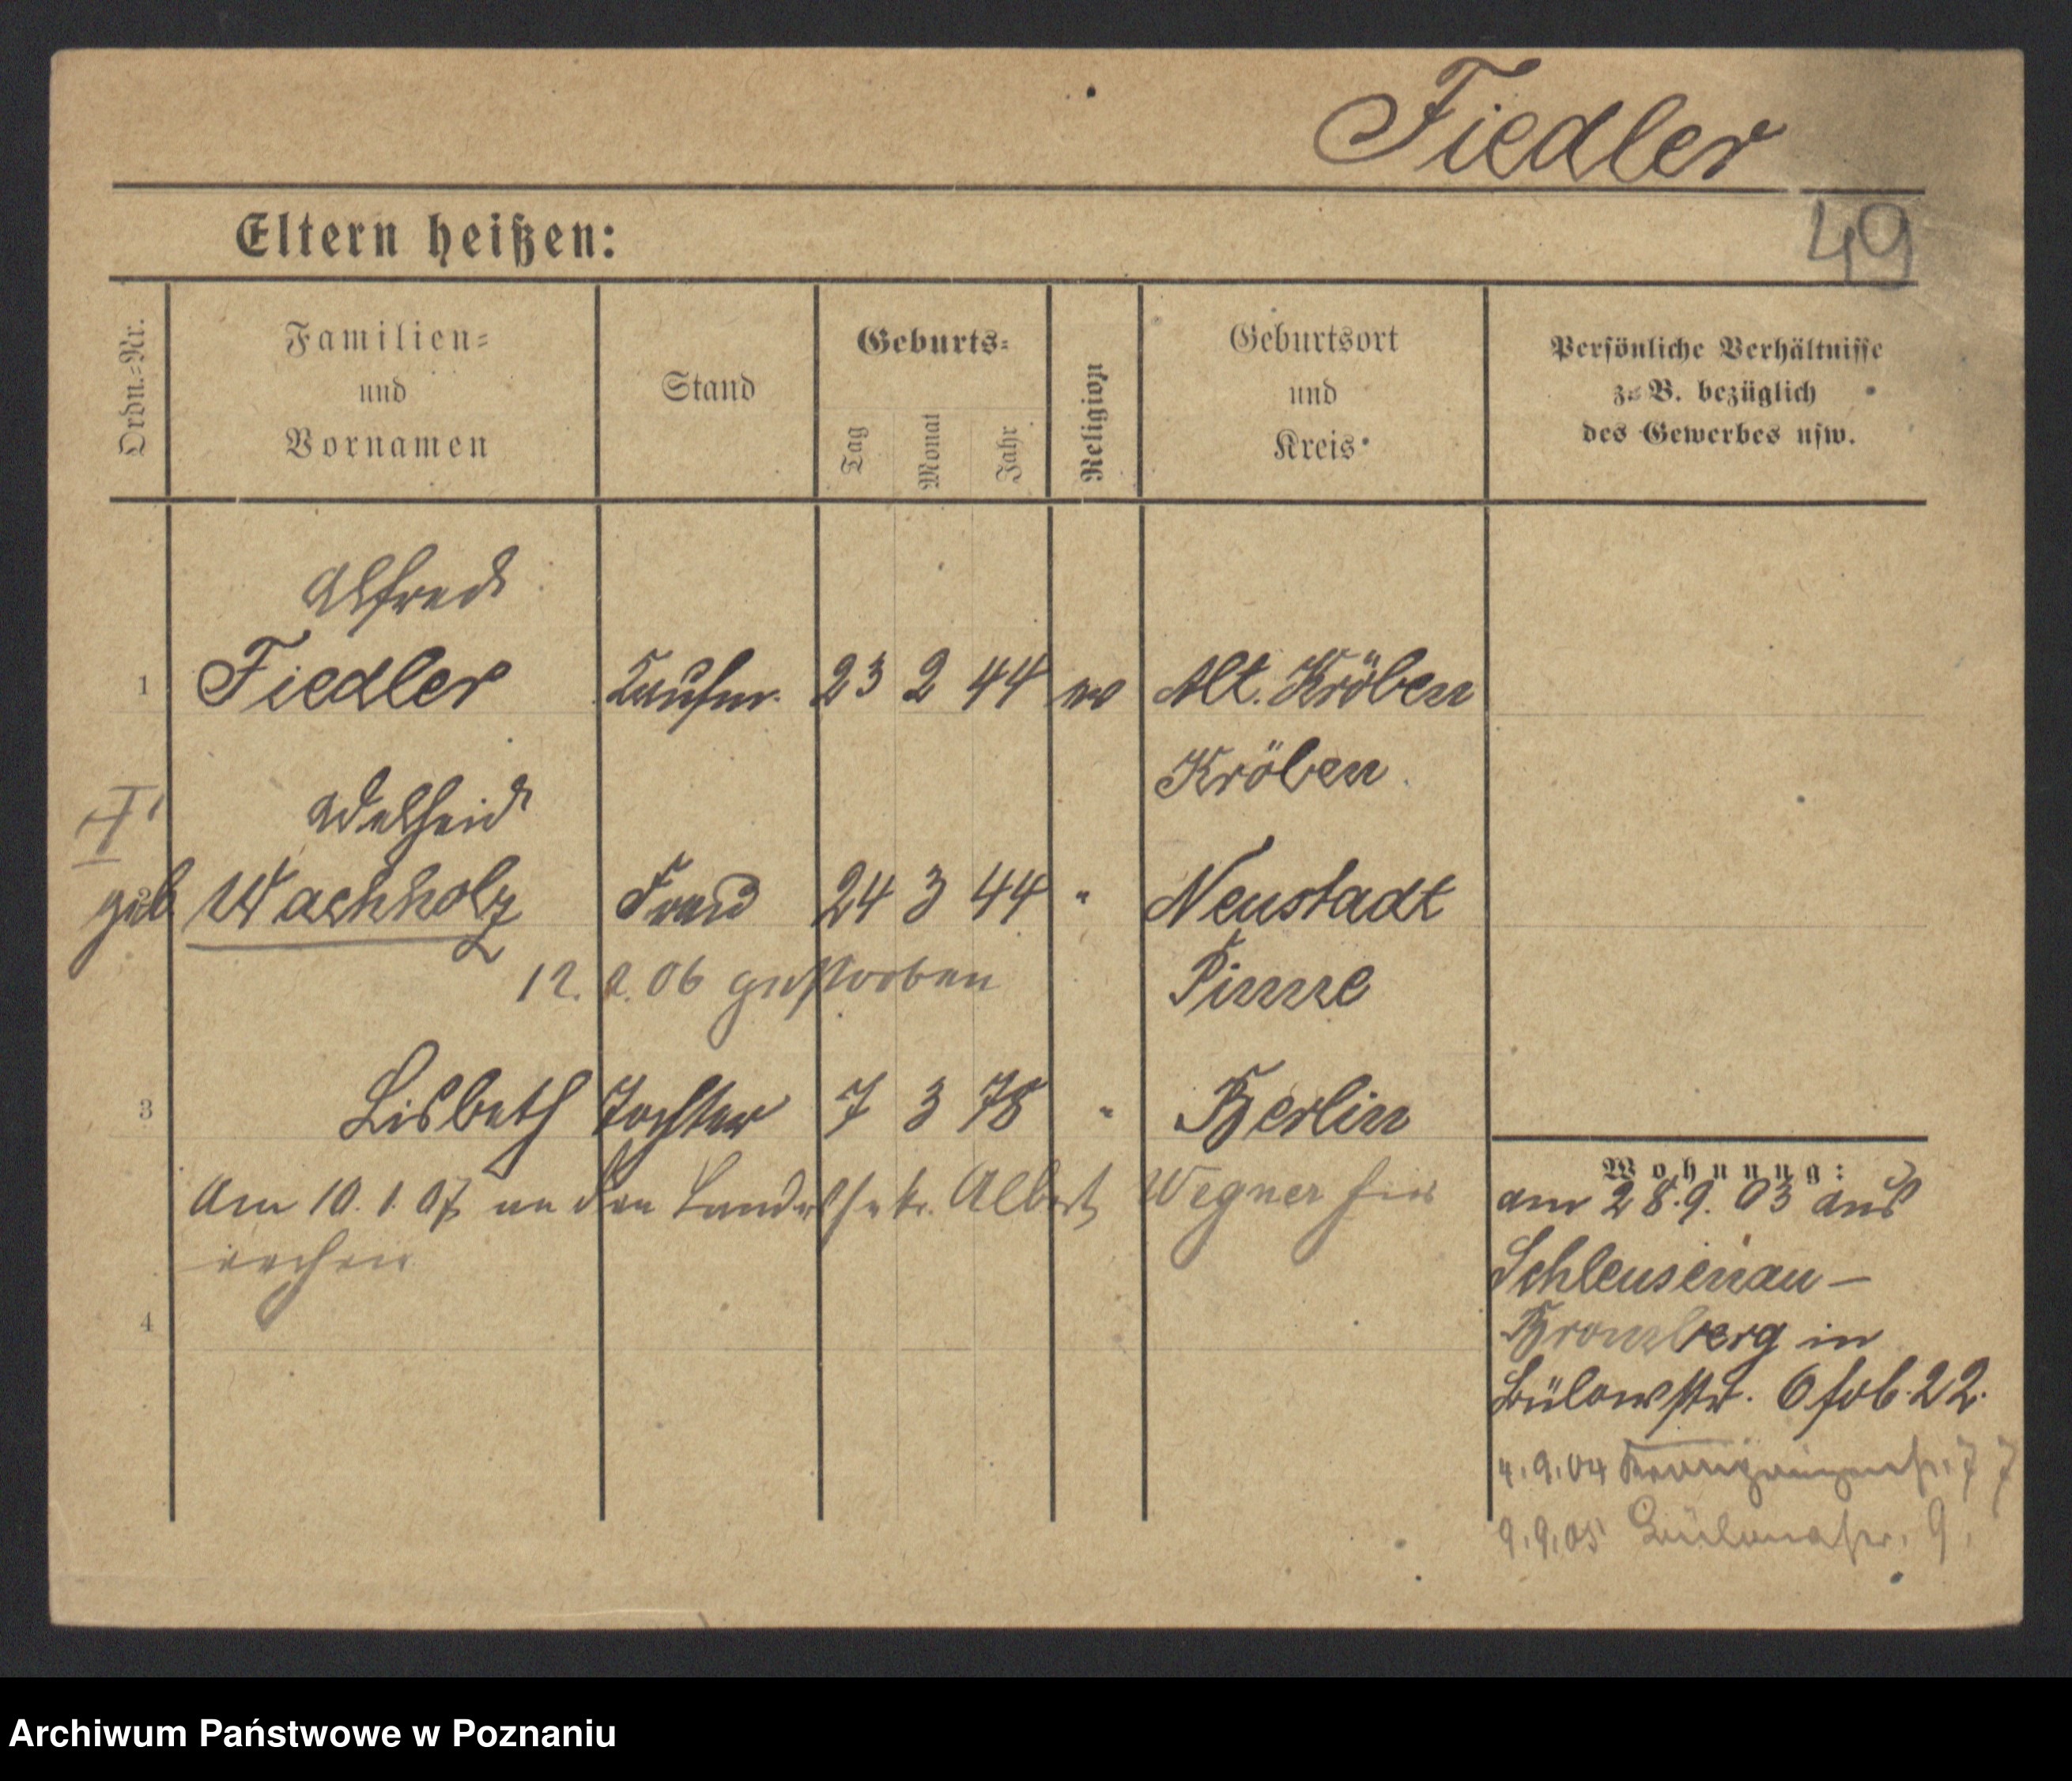 Fiedler
49
Eltern heißen:
Ordn.-Nr.
Familien-
und
Vornamen
Stand
Geburts-
Tag
Monat
Jahr
Religion
Geburtsort
und
Kreis
Persönliche Verhältnisse
z. B. bezüglich
des Gewerbes usw.
Alfred
1 Fiedler Kaufm. 23 2 44 ev Alt. Kröben
Kröben
Adelheid
geb Wachholz Frau 24 3 44 " Neustadt
12. 2. 06 gestorben Pinne
3 Lisbeth Tochter 7 3 78 " Berlin
Am 10. 1. 07 an den Albert Wegner hier
4
Wohnung:
am 28.9.03 aus
Schleusenau-
Bromberg in
Bülowstr. 6 22.
4.9.04 7
9.9.05 Bülowstr. 9.
Archiwum Państwowe w Poznaniu